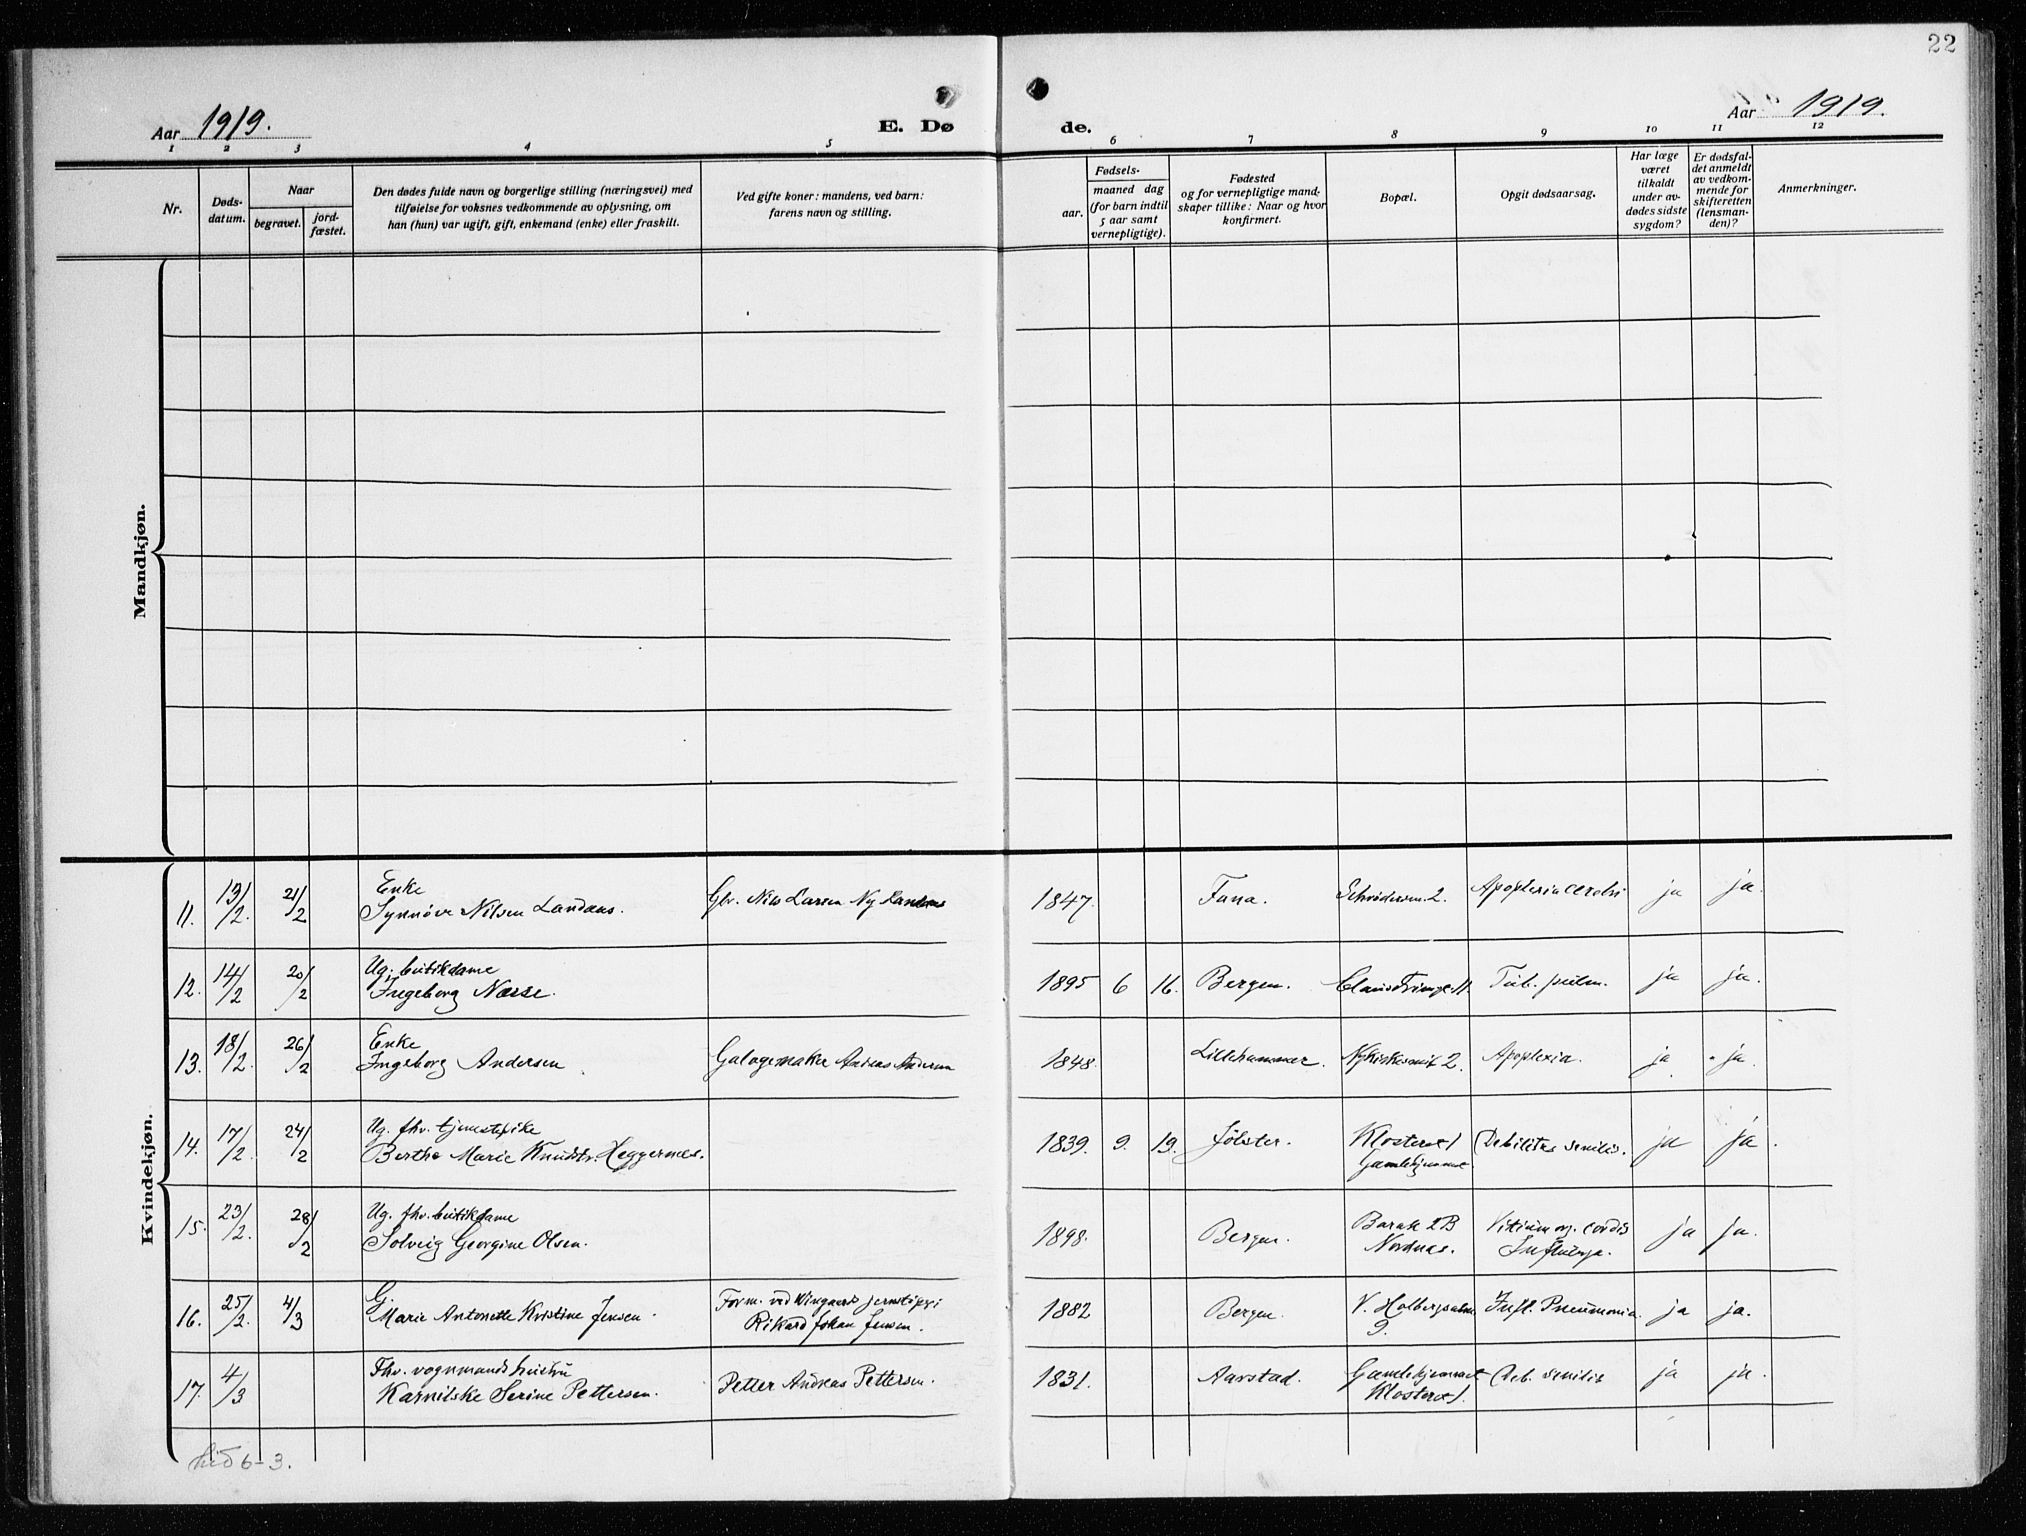 22
Aar 1919.
E. Dø
de.
Aar 1919.
1 2 3 4 5 6 7 8 9 10 11 12
Nr.
Døds-
datum.
Naar
begravet.
jord-
fæstet.
Den dødes fulde navn og borgerlige stilling (næringsvei) med
tilføielse for voksnes vedkommende av oplysning, om
han (hun) var ugift, gift, enkemand (enke) eller fraskilt.
Ved gifte koner: mandens, ved barn:
farens navn og stilling.
Fødsels-
aar.
maaned dag
(for barn indtil
5 aar samt
vernepligtige).
Fødested
og for vernepligtige mand-
skaper tillike: Naar og hvor
konfirmert.
Bopæl.
Opgit dødsaarsag.
Har læge
været
tilkaldt
under av-
dødes sidste
sygdom?
Er dødsfal-
det anmeldt
av vedkom-
mende for
skifteretten
(lensman-
den)?
Anmerkninger.
Mandkjøn.
Kvindekjøn.
11. 13/2. 21/2
Enke
Synnøve Nilsen Landaas.
Gbr. Nils Larsen Ny Landaas
1847. Fana. Schrødersm. 2. Apoplexia cerebri ja ja.
12. 14/2 20/2
Ug. butikdame
Ingeborg Næsse.
1895 6 16. Bergen. Tub. pulm. ja ja.
13. 18/2. 26/2
Enke
Ingeborg Andersen
Galogemaker Andreas Andersen
1848. Lillehammer. 2. Apoplexia. ja ja.
14. 17/2. 24/2
Ug. fhv. tjenestepike
Berthe Marie Knudstr. Heggernes.
1839. 9. 19. Jølster. Klosteret 1
Gamlehjemmet
Debilitas senilis. ja ja.
15. 23/2. 28/2
Ug. fhv. butikdame
Solveig Georgine Olsen.
1898. Bergen. Barak 2B
Nordnes.
Vitium org. cordis
Influenza. ja ja.
16. 25/2. 4/3
G.
Marie Antonette Kristine Jensen.
Form. ved Wingaards jernstøperi
Rikard Johan Jensen.
1882 Bergen. V. Holbergsalm.
9.
Infl. Pneumonia. ja ja.
17. 4/3
Fhv. vognmands hustru
Karnilske Serine Pettersen.
Petter Andreas Pettersen.
1831. Aarstad. Gamlehjemmet
Klosteret 1.
Deb. senilis ja ja.
hid 6-3.